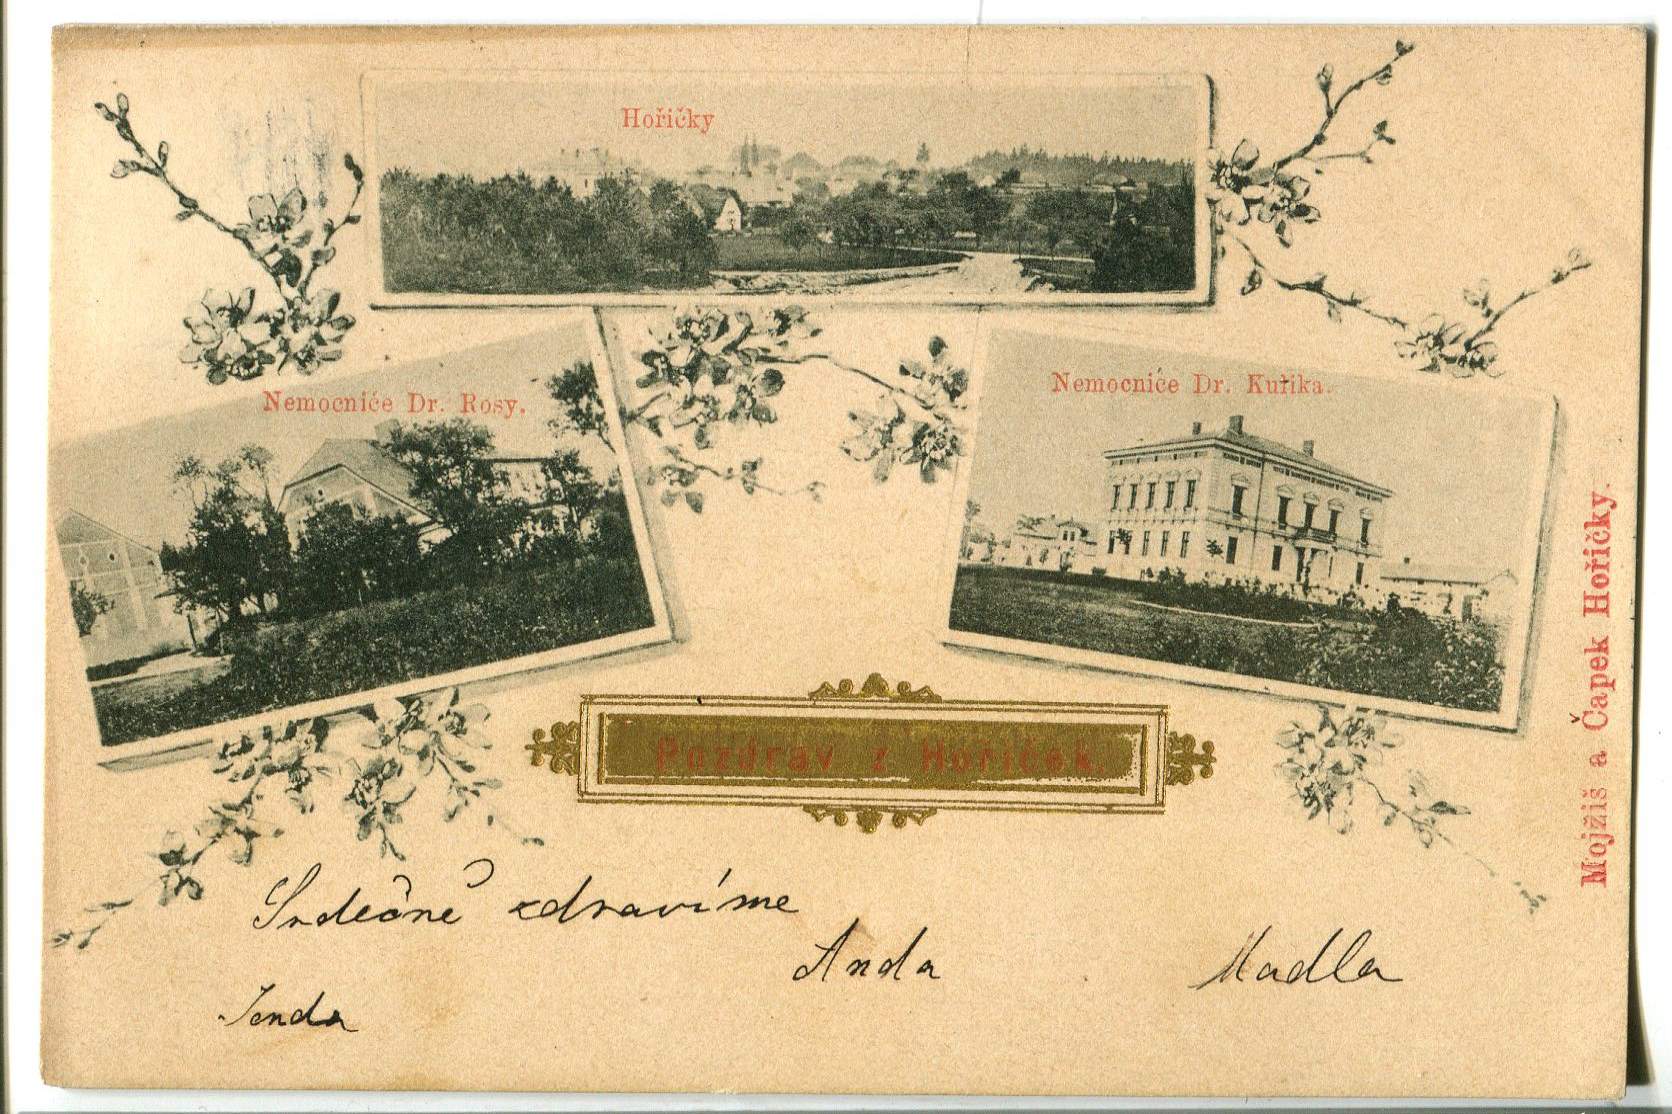 Hořičky
Nemocniće Dr. Rosy.
Nemocniće Dr. Kuříka.
Pozdrav z Hořiček.
Mojžiš a Čapek Hořičky.
Srdečně zdravíme
Anda
Madla
Jenda